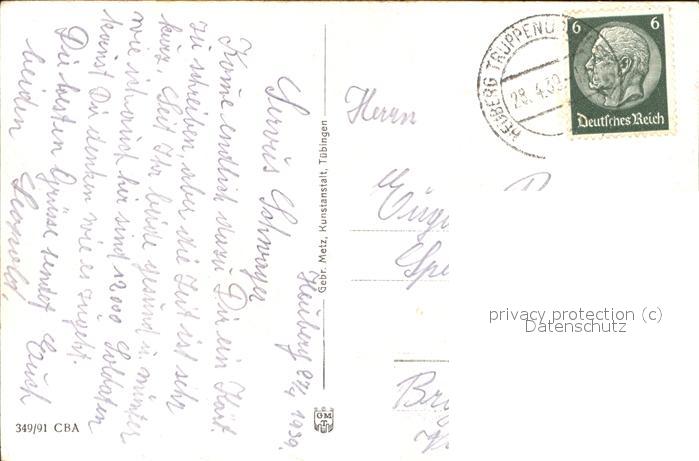 Heuberg 27/4 1939.
Servus Schwager
Komme endlich dazu Dir ein Kart.
zu schreiben, aber die Zeit ist sehr
kurz. Seit Ihr beide gesund u. munter
wie ich auch hier sind 12000 Soldaten
kannst Du denken wie es zugeht.
Die besten Grüsse sendet Euch
beiden Leopold.
349/91 CBA
Gebr. Metz, Kunstanstalt, Tübingen
GM
T
HEUBERG TRUPPENÜ
28.4.39
6 6
Deutsches Reich
Herrn
Euge
Spe
Br
privacy protection (c)
Datenschutz